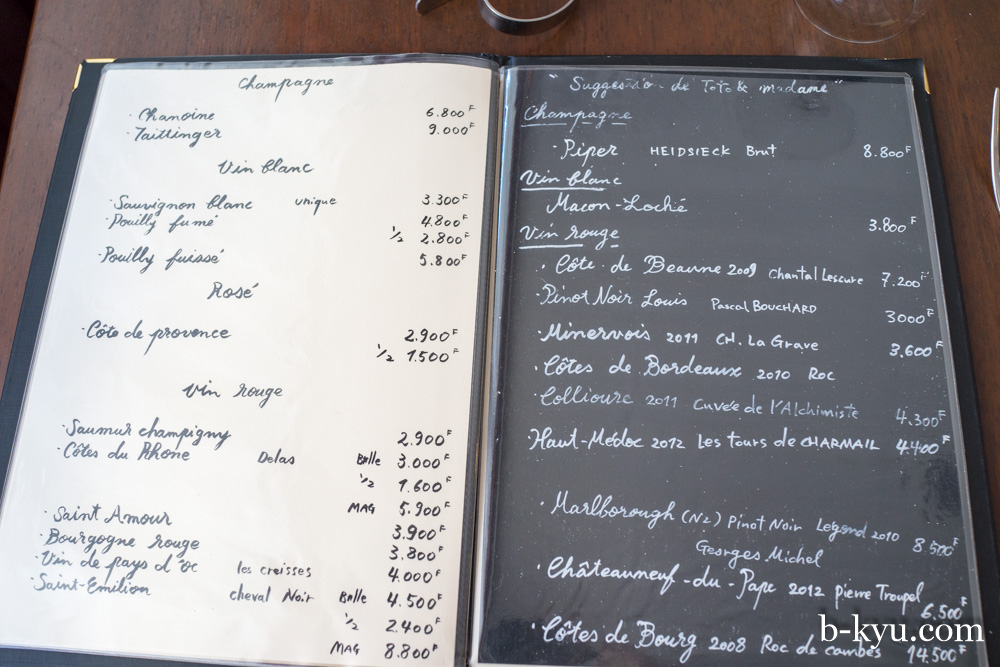 Champagne
· Chanoine 6.800F
· Taittinger 9.000F
Vin blanc
· Sauvignon blanc unique 3.300F
· Pouilly fumé 4.800F
1/2 2.800F
· Pouilly fuissé 5.800F
Rosé
· Côte de provence 2.900F
1/2 1.500F
Vin rouge
· Saumur champigny 2.900F
· Côtes du Rhone Delas Blle 3.000F
1/2 1.600F
MAG 5.900F
· Saint Amour 3.900F
· Bourgogne rouge 3.800F
· Vin de pays d'oc les creisses 4.000F
· Saint-Emilion cheval Noir Blle 4.500F
1/2 2.400F
MAG 8.800F
"Suggestion de Toto & madame"
Champagne
· Piper HEIDSIECK Brut 8.800F
Vin blanc
Macon-Loché 3.800F
Vin rouge
· Côte de Beaune 2009 Chantal Lescure 7.200F
· Pinot Noir Louis Pascal BOUCHARD 3000F
· Minervois 2011 CH. La Grave 3.600F
· Côtes de Bordeaux 2010 Roc
· Collioure 2011 Cuvée de l'Alchimiste 4.300F
· Haut-Médoc 2012 Les tours de CHARMAIL 4.400F
· Marlborough (NZ) Pinot Noir Legend 2010 8.500F
Georges Michel
· Châteauneuf-du-Pape 2012 pierre Troupel 6.500F
· Côtes de Bourg 2008 Roc de cambes 14.500F
b-kyu.com